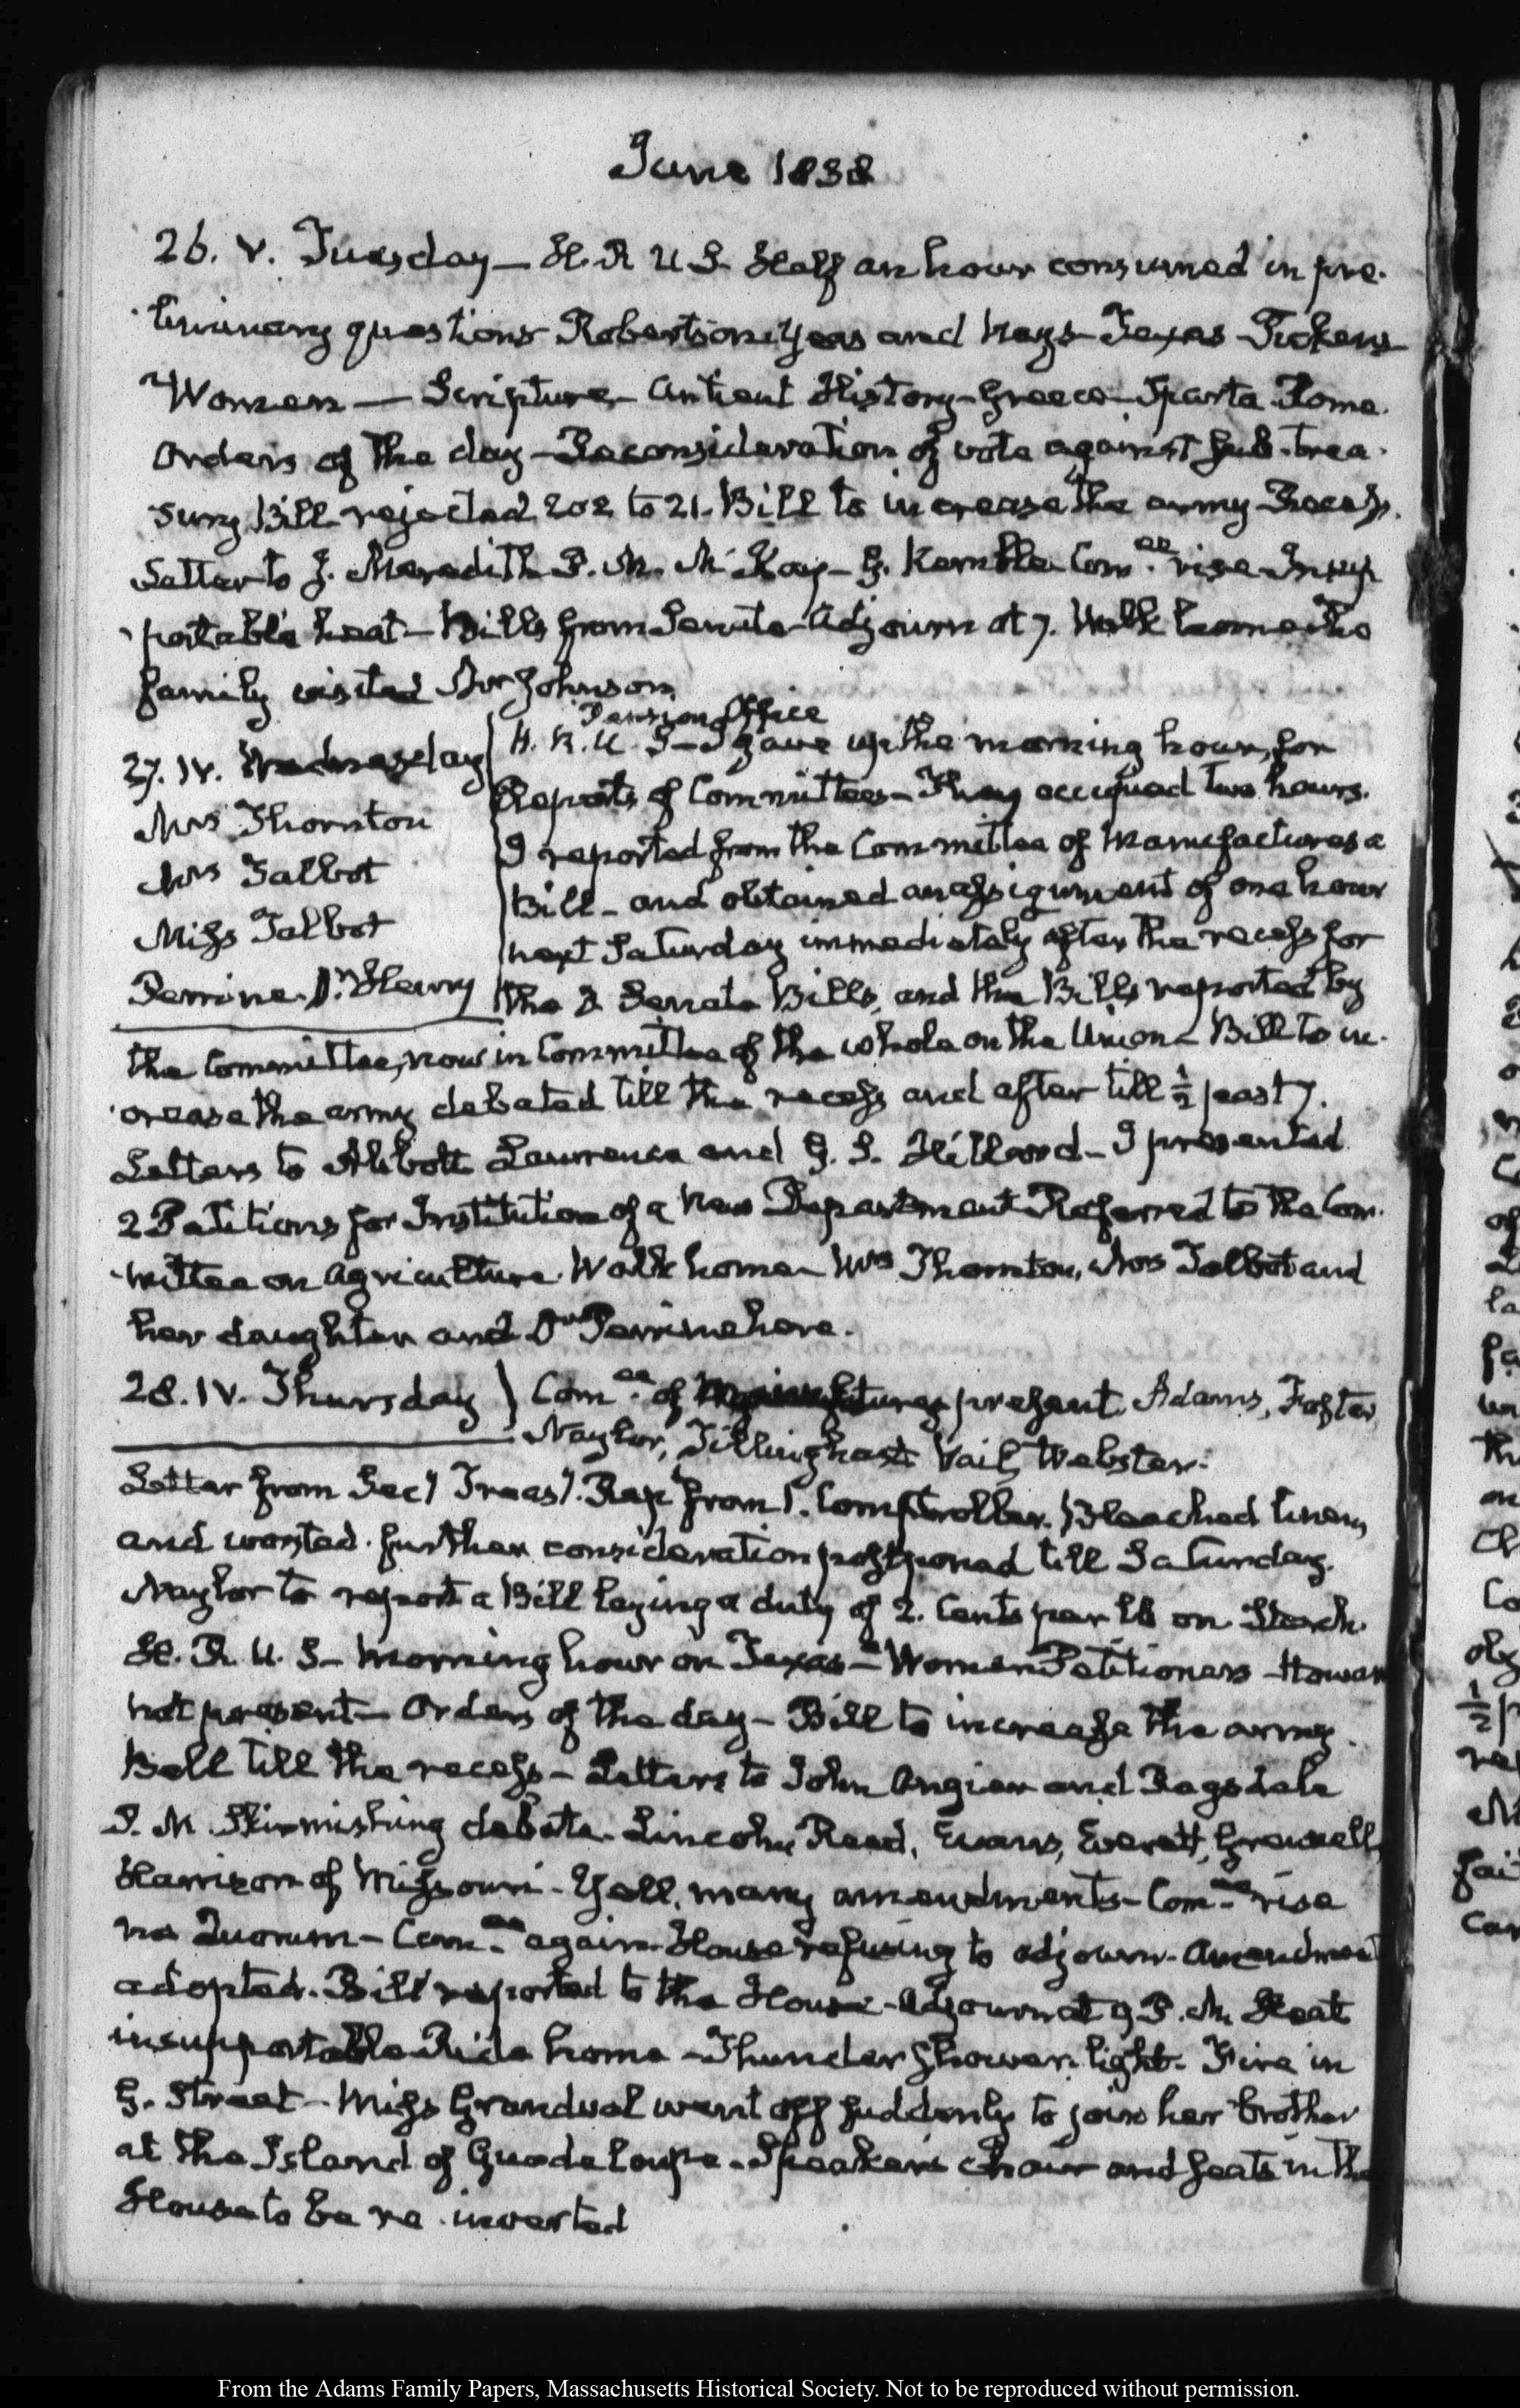 June 1838
26. V. Tuesday — H. R U S. Half an hour consumed in pre-
liminary questions Robertson Yeas and Nays Texas
Women — Scripture — Antient History — Greece — Sparta Rome.
Orders of the day — Reconsideration of vote against sub-trea-
sury Bill rejected 202 to 21. Bill to increase the army — Recess.
Letter to J. Meredith P. M. McKay — G. Kemble Com.ee rise — Insup-
portable heat — Bills from Senate — Adjourn at 7. Walk home the
family visited Mrs Johnson
27. IV. Wednesday
Mrs Thornton
Mrs Talbot
Miss Talbot
Perrine. Dr. Henry
Pension Office
H. R. U. S — I gave up the morning hour, for
Reports of Committees — They occupied two hours.
I reported from the Committee of Manufactures a
Bill — and obtained an assignment of one hour
next Saturday immediately after the recess for
the 2 Senate Bills, and the Bills reported by
the Committee, now in Committee of the whole on the Union — Bill to in-
crease the army debated till the recess and after till ½ past 7.
Letters to Abbott Lawrence and G. S. Hillard — I presented
2 Petitions for Institution of a new Department Referred to the Com-
mittee on Agriculture. Walk home — Mrs Thornton, Mrs Talbot and
her daughter and Dr Perrine here.
28. IV. Thursday Com.ee of Manufactures present Adams, Foster,
Naylor, Tillinghast Vail, Webster.
Letter from Secy Treasy. Rep from 1. Comptroller. Bleached linens
and worsted. further consideration postponed till Saturday.
Naylor to report a Bill laying a duty of 2. Cents per lb on Starch.
H. R. U. S — Morning hour on Texas — Women Petitioners — Howard
not present — Orders of the day — Bill to increase the army.
Bell till the recess — Letters to John Angier and Ragsdale
P. M. Skirmishing debate. Lincoln, Reed, Evans, Everett, Grennell,
Harrison of Missouri — Yell, many amendments — Com.ee rise
no Quorum — Com.ee again — House refusing to adjourn — Amendment
adopted. Bill reported to the House — Adjourn at 9 P. M. Heat
insupportable Ride home — Thunder shower light. Fire in
G. Street — Miss Grandval went off suddenly to join her brother
at the Island of Guadeloupe. Speaker's chair and seats in the
House to be re-inverted
From the Adams Family Papers, Massachusetts Historical Society. Not to be reproduced without permission.